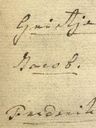 Grietje
Jacob.
Frederik